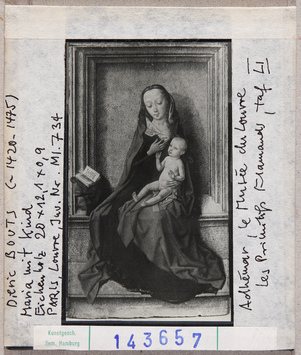 Dieric BOUTS (~ 1420-1475)
Maria mit Kind
Eichenholz 20 x 12,1 x 0,9
PARIS Louvre Inv. Nr. MI. 734
Adhémar Le Musée du Louvre
Les Primitifs Flamands, taf LI
Kunstgesch.
Sem. Hamburg
143657